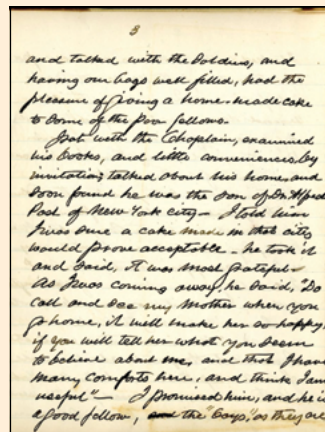 3
and talked with the Soldiers, and
having our bags well filled, had the
pleasure of giving a home-made cake
to some of the poor fellows.
Sat with the Chaplain, examined
his books, and little conveniences, by
invitation, talked about his home, and
soon found he was the son of Dr. Alfred
Post of New York city - I told him
I was sure a cake made in that city
would prove acceptable - he took it
and said, it was most grateful -
As I was coming away, he said, "Do
call and see my Mother when you
go home, it will make her so happy,
if you will tell her what you seem
to believe about me, and that I have
many comforts here, and think I am
useful" - I promised him, and he is
a good fellow, and the "boys," as they are